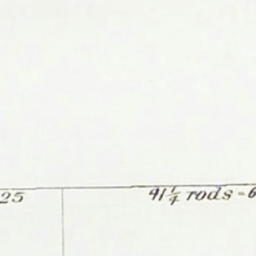 25 41¼ rods = 6